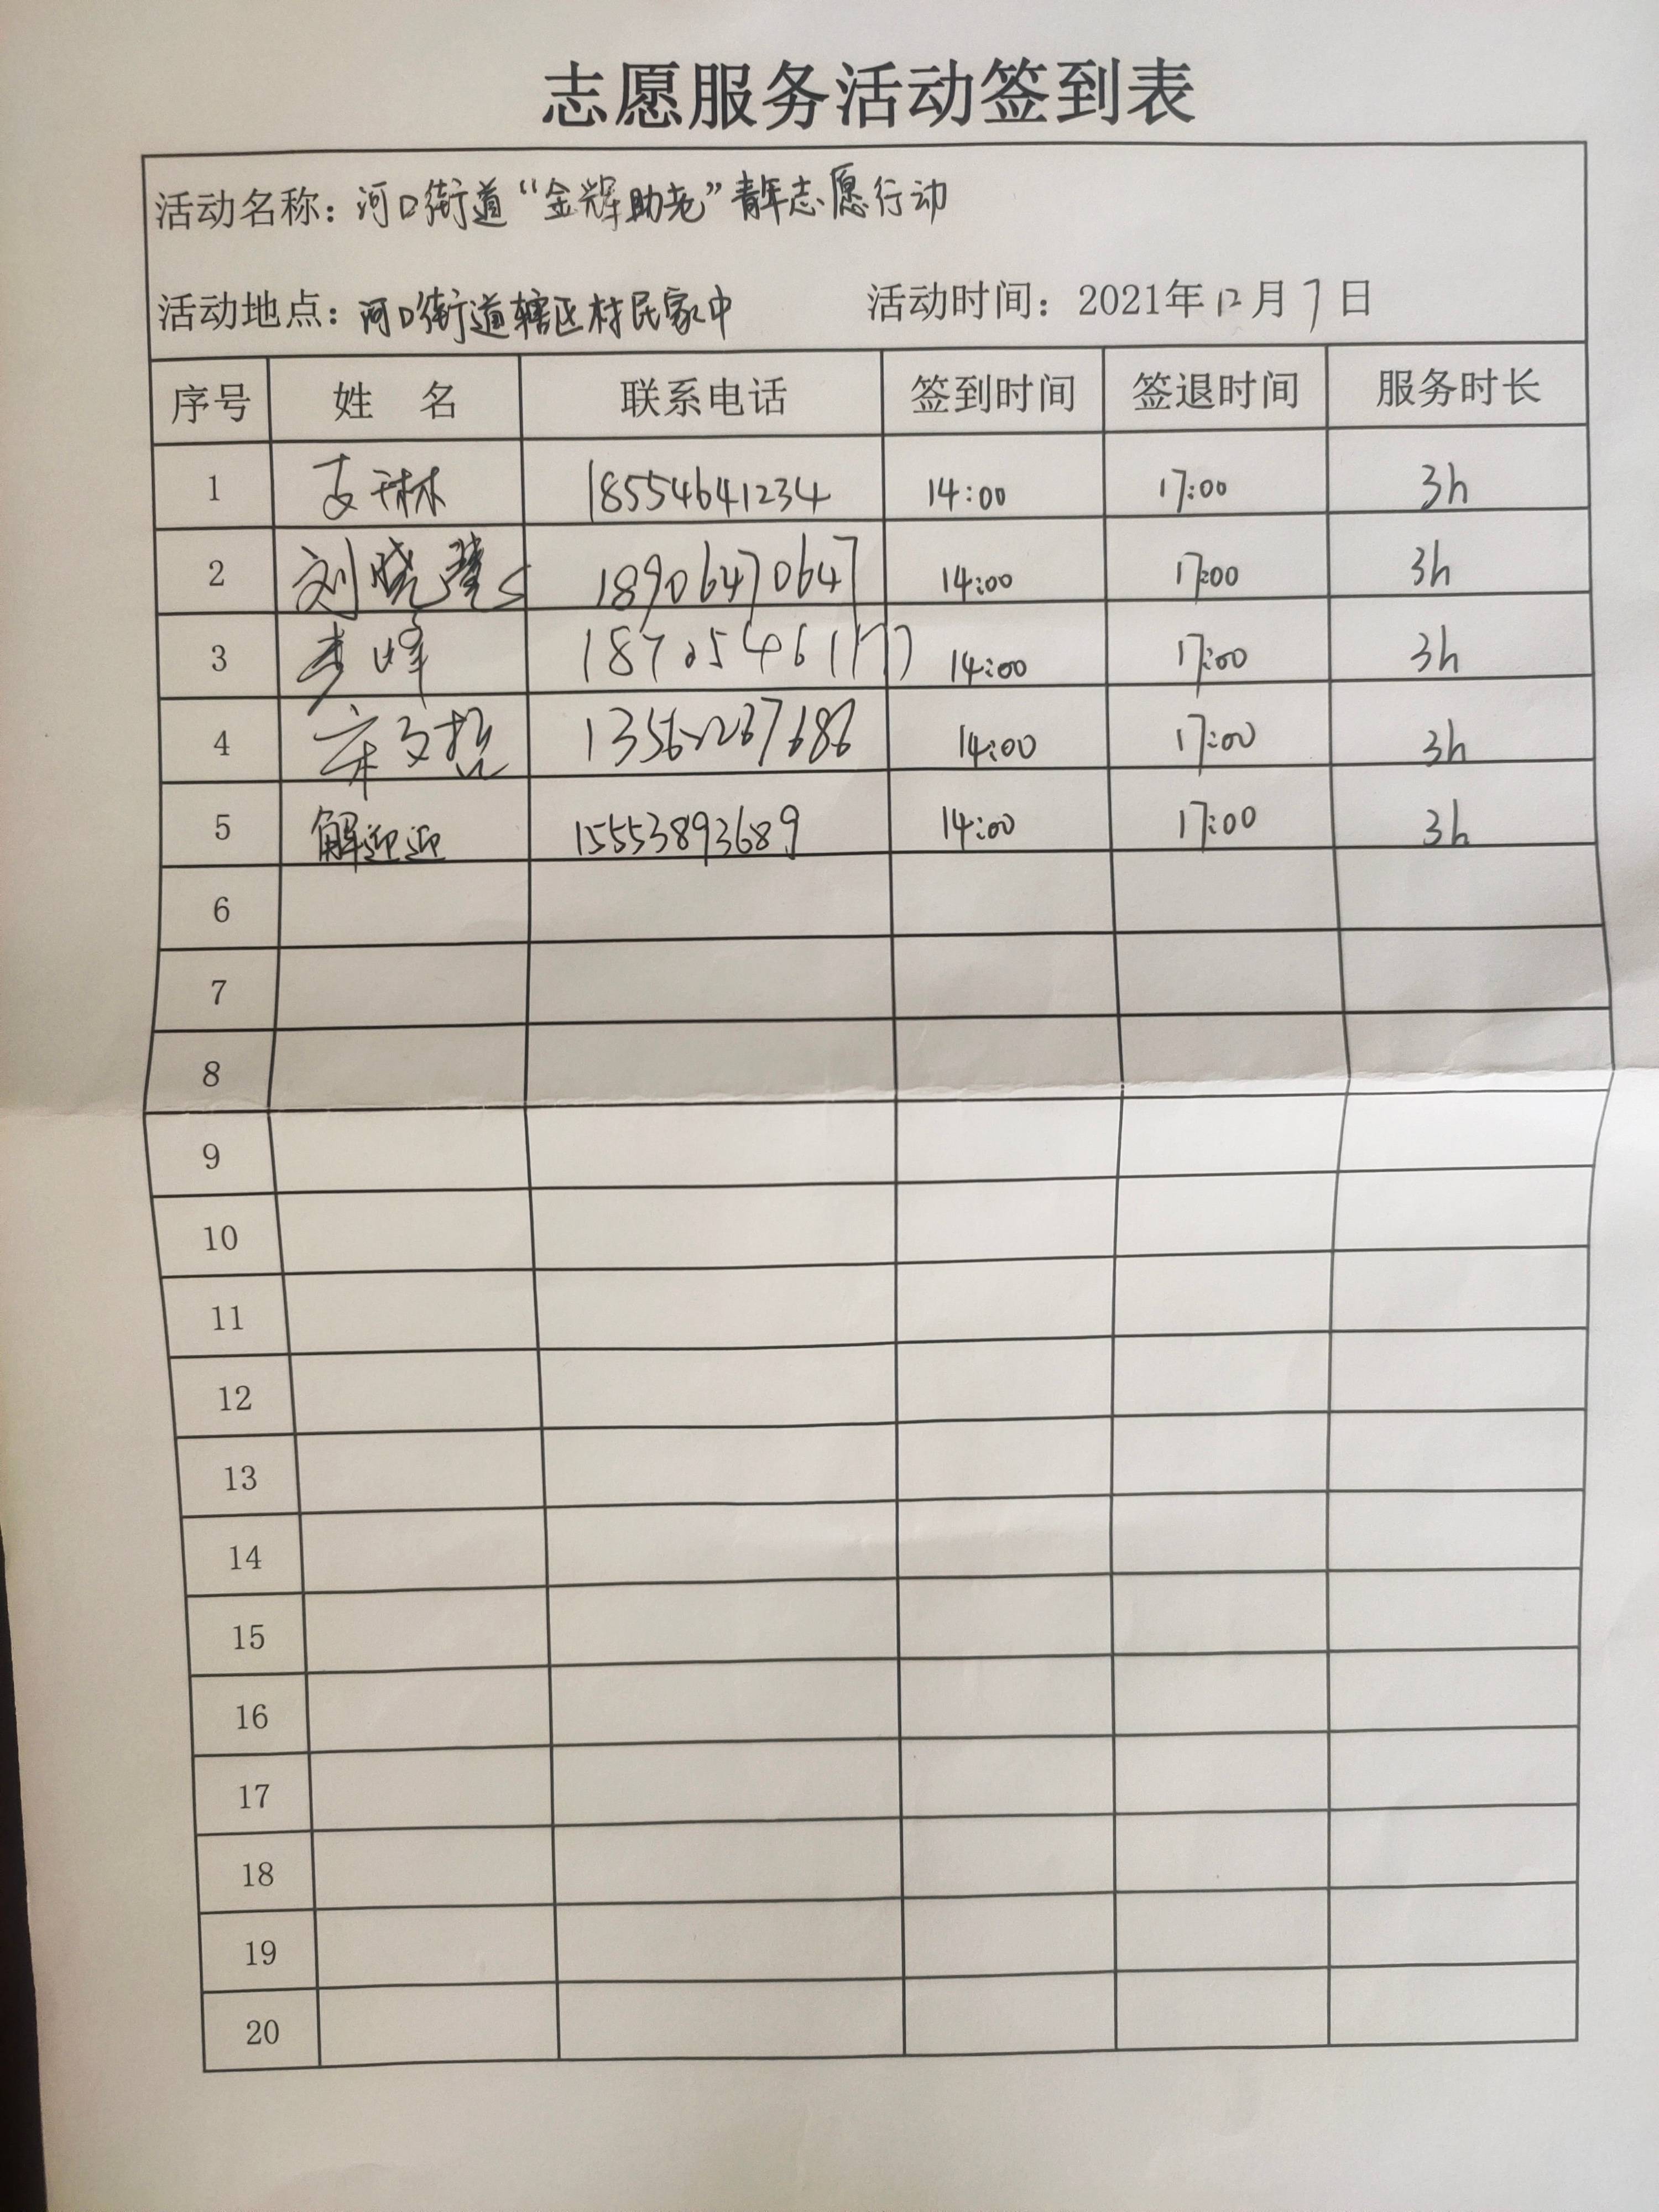 志愿服务活动签到表
活动名称：河口街道“金辉助老”青年志愿行动
活动地点：河口街道辖区村民家中 活动时间：2021年12月7日
序号 姓 名 联系电话 签到时间 签退时间 服务时长
1 18554641234 14:00 17:00 3h
2 刘晓莹 18906470647 14:00 17:00 3h
3 李峰 14:00 17:00 3h
4 宋文哲 14:00 17:00 3h
5 解迎迎 15553893689 14:00 17:00 3h
6
7
8
9
10
11
12
13
14
15
16
17
18
19
20